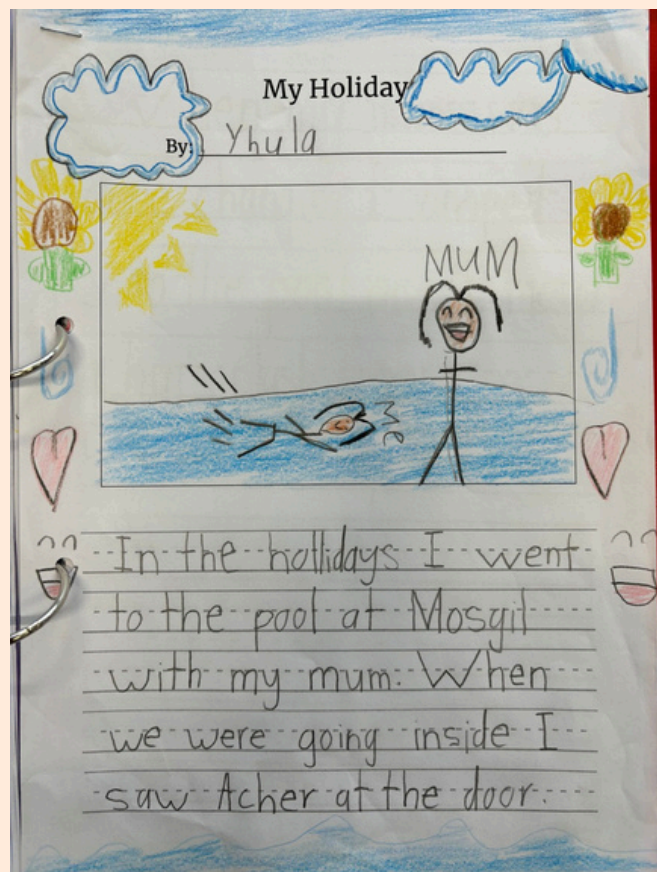 My Holiday
By: Yhula
MUM
me
In the hollidays I went
to the pool at Mosgil
with my mum. When
we were going inside I
saw Acher at the door.